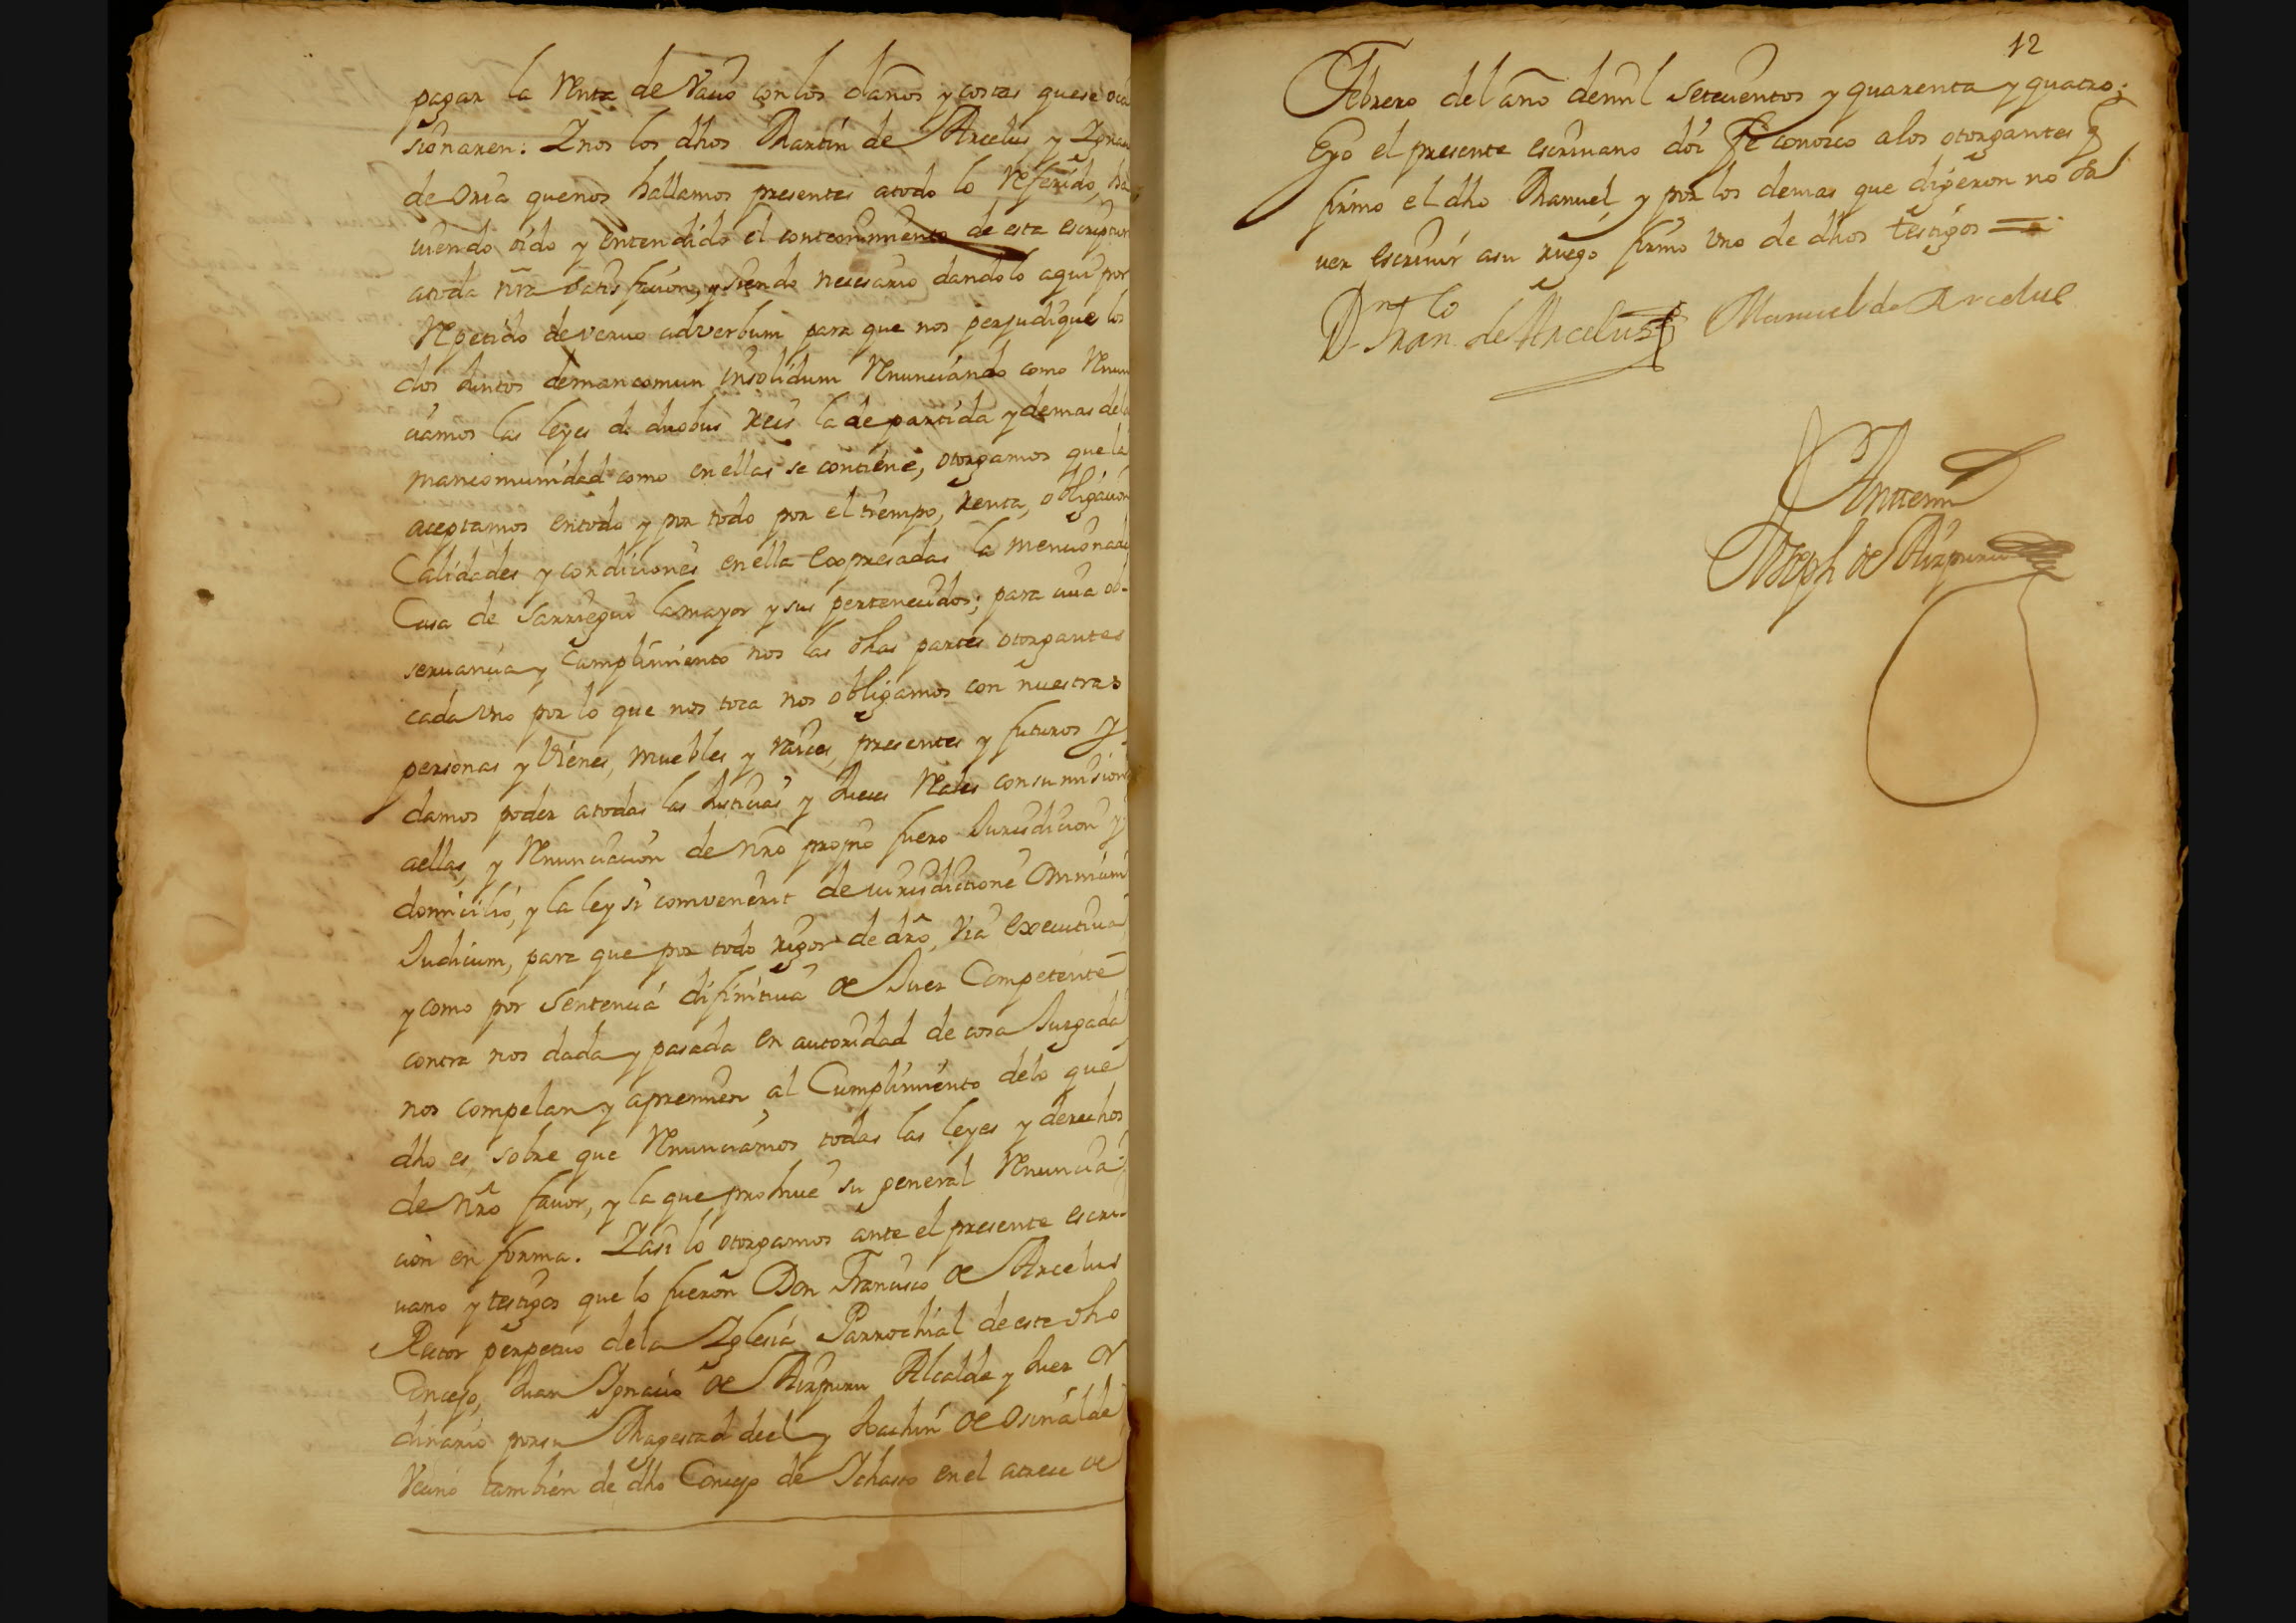 pagar la renta de vacio con los daños y costas que se oca
sionaren: Y nos los dhos Martin de Arcelus y Ygnacio
de Oria que nos hallamos presentes a todo lo referido, ha
viendo oido y entendido el contenimiento de esta escriptura
a toda nra satisfacion, y siendo necesario dandolo aqui por
repetido de vervo adverbum para que nos perjudique los
dos Juntos de mancomun insolidum renunciando como renun
ciamos las leyes de duobus reis la de partida y demas dela
mancomunidad como en ellas se contiene, otorgamos que la
aceptamos en todo y por todo por el tiempo, renta, obligacion
Calidades y condiciones en ella expresadas la mencionada
Casa de Sarriegui la mayor y sus pertenecidos; para cuia ob-
servancia y Cumplimiento nos las dhas partes otorgantes
cada uno por lo que nos toca nos obligamos con nuestras
personas y vienes, muebles y raices, presentes y futuros y
damos poder a todas las Justicias y Jueces reales con sumision
aellas, y renunciacion de nro propio fuero Jurisdicion y
domicilio, y la ley si comvenerit de iurisdictione omnium
Judicum, para que por todo rigor de dro, via executiva
y como por sentencia difinitiva de Juez Competente
contra nos dada y pasada en autoridad de cosa Juzgada
nos compelan y apremien al Cumplimiento delo que
dho es, sobre que renunciamos todas las leyes y derechos
de nro favor, y la que prohive su general renuncia-
cion en forma. Y asi lo otorgamos ante el presente escri-
vano y testigos que lo fueron Don Francisco de Arcelus
Rector perpetuo dela Yglesia Parrochial de este dho
Concejo, Juan Ygnacio de Aizpuru Alcalde y Juez or
dinario por su Magestad deel y Joachin de Osinalde
vecino tambien de dho Concejo de Ychaso en el atrece de
12
Febrero del año de mil setecientos y quarenta y quatro;
E yo el presente escrivano doi fe conozco a los otorgantes q
firmo el dho Manuel y por los demas que digeron no sa
ver escrivir a su ruego firmo uno de dhos testigos =
Dn Franco de Arcelus Manuel de Arcelus
Antemi
Joseph de Aizpuru